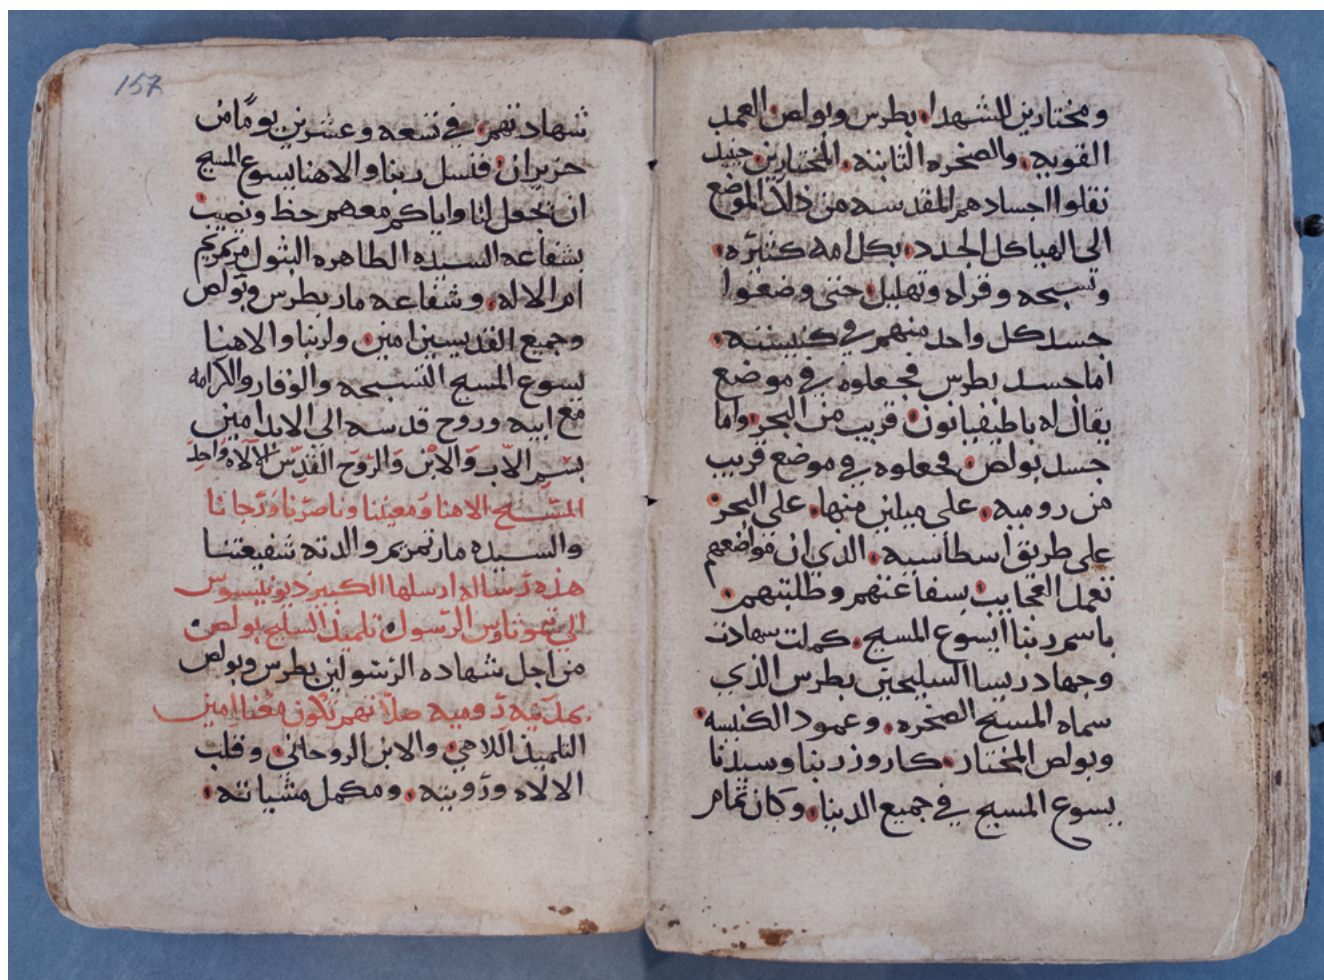 ومختارين الشهدا، بطرس وبولص العمد
القويه، والصخره الثابته، المختارين حيث
نقلوا اجسادهم المقدسه من ذلك الموضع
الى الهياكل الجدد، بكل امه كثيره،
وتسبحه وقراه وتهليل حتى وضعوا
جسد كل واحد منهم في كنيسته،
اما جسد بطرس فجعلوه في موضع
يقال له باطيفيانون، قريب من البحر، واما
جسد بولص، فجعلوه في موضع قريب
من روميه، على ميلين منها، على البحر
على طريق اسطاسيه، الذي ان مواضعهم
تعمل العجايب، بسفاعتهم وطلبتهم،
باسم ربنا ايسوع المسيح، كملت سهادت
وجهاد ريسا السليحين بطرس الذي
سماه المسيح الصخره، وعمود الكنيسه،
وبولص المختار، كاروز ربنا وسيدنا
يسوع المسيح في جميع الدنيا، وكان تمام
157
شهادتهم، في تسعه وعشرين يومًا من
حزيران، فنسل ربنا والاهنا يسوع المسيح
ان يجعل لنا واياكم معهم حظ ونصيب،
بشفاعه السيده الطاهره البتول مرتمريم
ام الالاه، وشفاعه مار بطرس وبولص
وجميع القديسين امين، ولربنا والاهنا
يسوع المسيح التسبحه والوقار والكرامه
مع ابيه وروح قدسه الى الابد امين
بسم الاب والابن والروح القدس الالاه واحد
المسيح الاهنا ومعيننا وناصرنا ورجانا
والسيده مارتمريم والدته شفيعتنا
هذه رساله ارسلها الكبير ديونيسوس
الى تموثاوس الرسول، تلميذ السليح بولص،
من اجل شهاده الرسولين بطرس وبولص
بمدينه روميه صلاتهم تكون معنا امين
التلميذ اللاهي، والابن الروحاني، وقلب
الالاه ورويته، ومكمل مشياته،